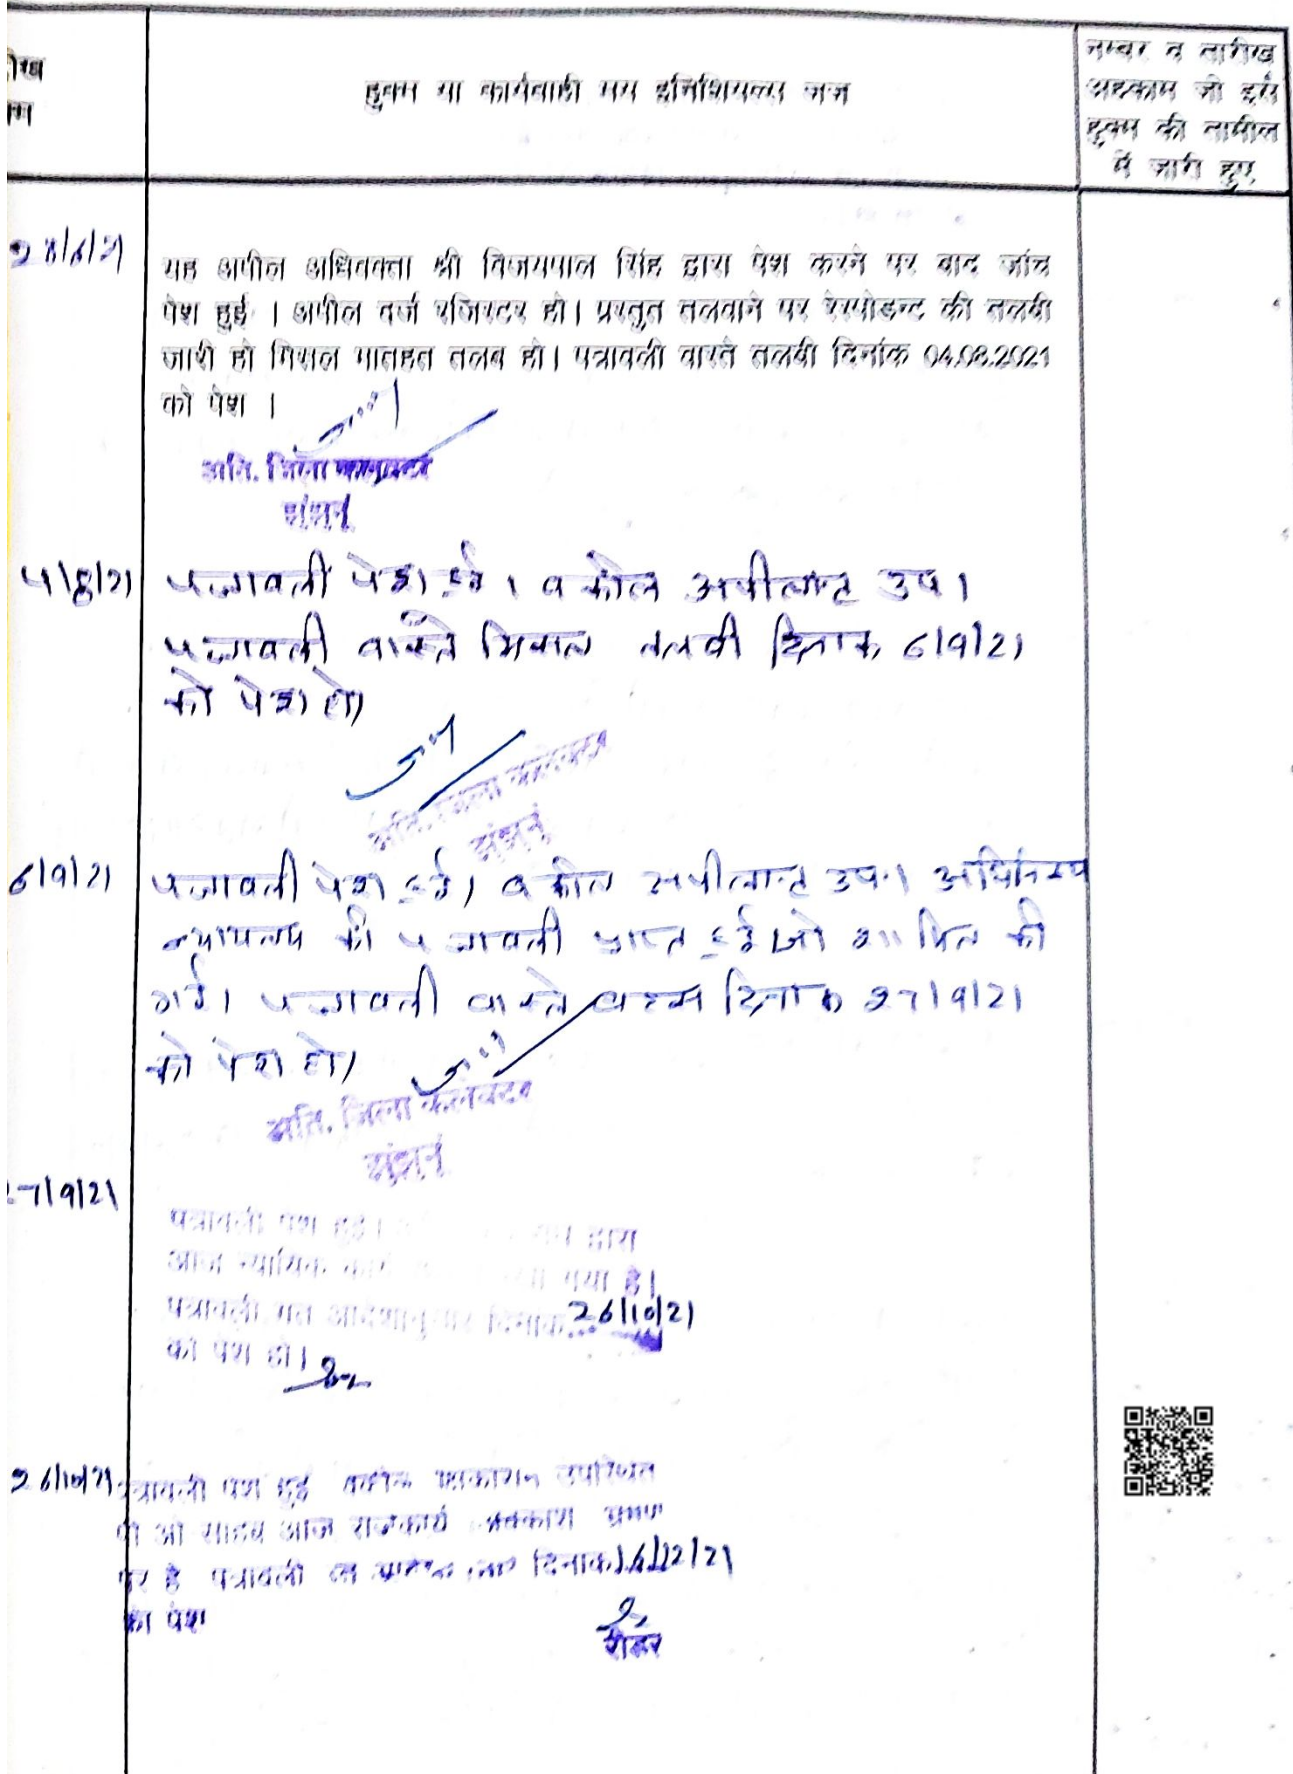 हुक्म या कार्यवाही मय इनिशियल्स जज
नम्बर व तारीख
अहकाम जो इस
हुक्म की तामील
में जारी हुए
28/6/21
यह अपील अधिवक्ता श्री विजयपाल सिंह द्वारा पेश करने पर बाद जांच
पेश हुई । अपील दर्ज रजिस्टर हो। प्रस्तुत तलवाने पर रेस्पोडेन्ट की तलबी
जारी हो मिसल मातहत तलब हो। पत्रावली वास्ते तलबी दिनांक 04.08.2021
को पेश ।
अति. जिला कलक्टर
झुंझुनूं
4/8/21
पत्रावली पेश हुई। वकील अपीलान्ट उप।
पत्रावली वास्ते मिसल तलबी दिनांक 6/9/21
को पेश हो।
अति. जिला कलेक्टर
झुंझुनूं
6/9/21
पत्रावली पेश हुई। वकील अपीलान्ट उप। अधिनस्थ
न्यायालय की पत्रावली प्राप्त हुई जो शामिल की
गई। पत्रावली वास्ते बहस दिनांक 27/9/21
को पेश हो।
अति. जिला कलक्टर
झुंझुनूं
27/9/21
पत्रावली पेश हुई। द्वारा
आज न्यायिक कार्य गया है।
पत्रावली दिनांक 26/10/21
को पेश हो।
26/10/21
पत्रावली पेश हुई वकील पक्षकारान उपस्थित
पी ओ साहब आज राजकार्य भ्रमण
पर है पत्रावली दिनांक 16/12/21
को पेश
रीडर